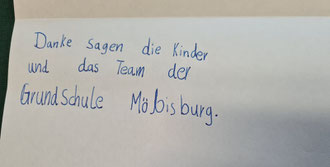 Danke sagen die Kinder
und das Team der
Grundschule Möbisburg.